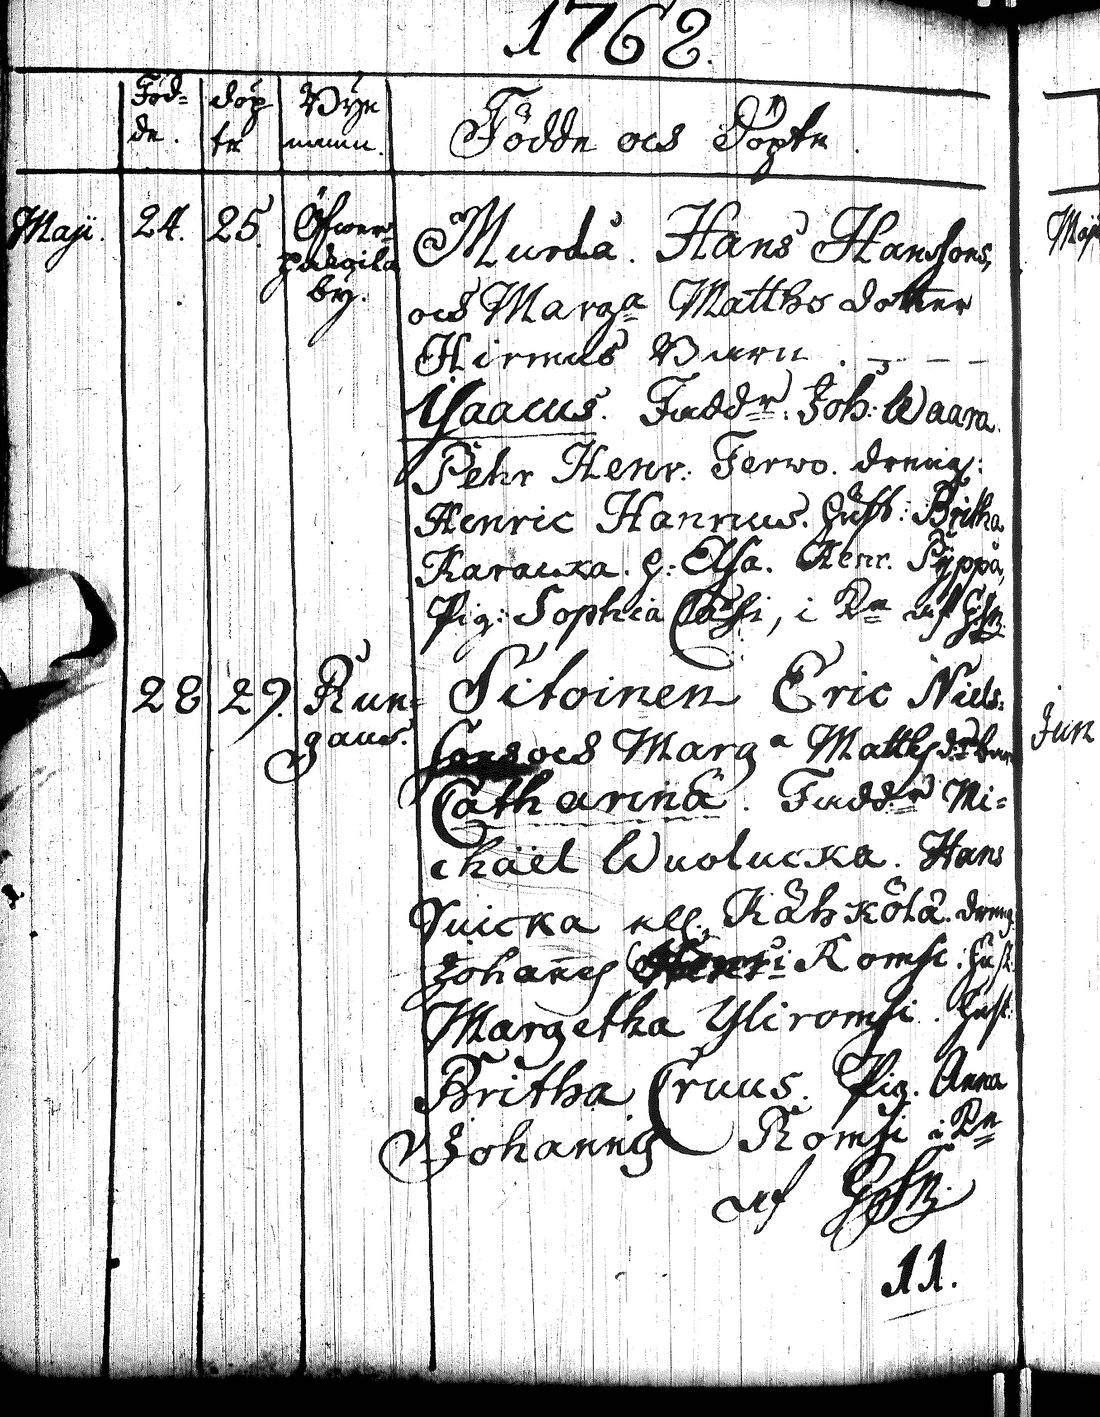 1762.
Föd= döp Byar
de. te namn. Födde och Döpte.
Maji. 24. 25. Öfwer Murda. Hans Hanssons,
by. och Marg:a Matths dotter
Hinnus Barn.
Ysaacus. Fadd:r. Joh: Waara
Pehr Henr: Ferwo. dreng:
Henric Hannus. Hust: Britha
Karauxa. h: Elsa. Henr. Pyppä,
Pig: Sophia Cassi, i D:n af
28 29. Run= Sitoinen Eric Niels=
gaus. sons och Marg:a Matths d:r barn
Catharina. Fadd:r Mi=
chäel Wuolucka. Hans
Suicka all. Kähkölä. dreng
Johannes Romsi. Hust:
Margetha Yliromsi. Hust:
Britha Cruus. Pig. Anna
Johannis Romsi i D:n
af
11.
Maji
Jun